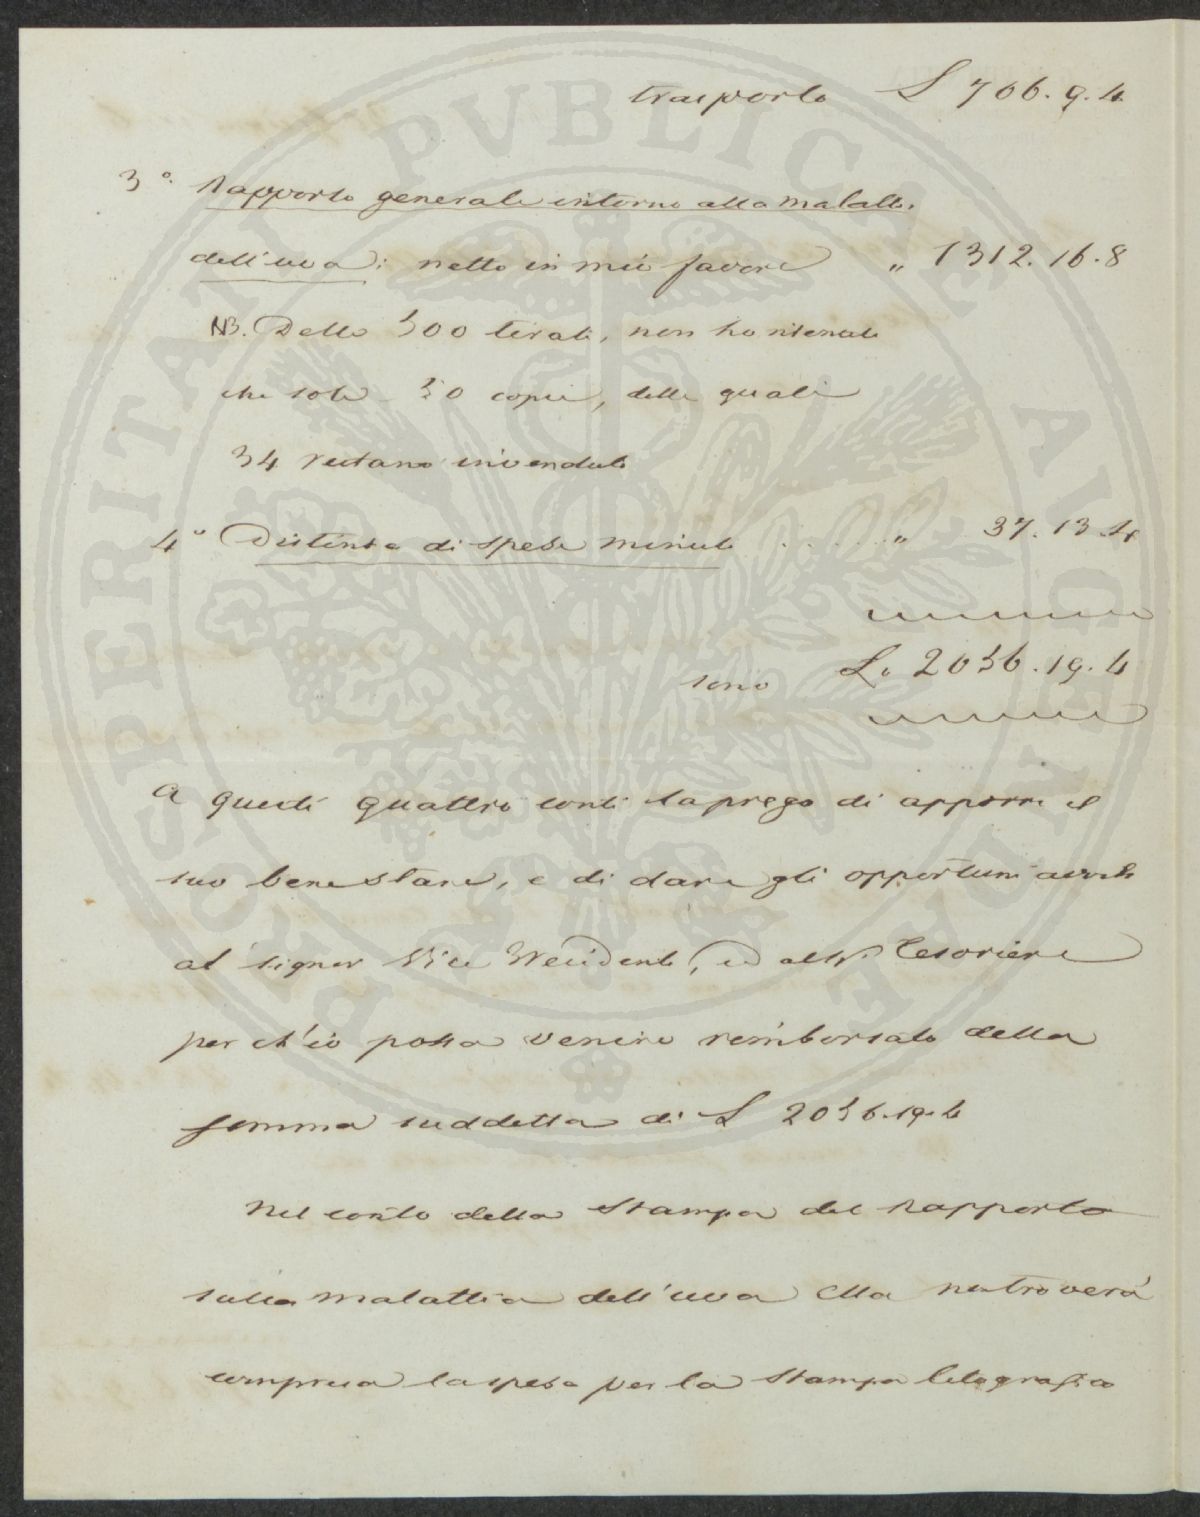 trasporto £ 706. 9. 4.
3° Rapporto generale intorno alla malatt.
dell'uva: netto in mio favore " 1312. 16. 8
NB. Delle 500 tirate, non ho ritenute
che sole 50 copie, delle quali
34 restano invendute
4° Distinta di spese minute ...... " 37. 13. 4
sono L. 2056. 19. 4
A questi quattro conti la prego di apporre il
suo bene stare, e di dare gli opportuni avvisi
al signor Vice Presidente, ed al Sr. Tesoriere
per ch'io possa venire rimborsato della
somma suddetta di £ 2056. 19. 4
Nel conto della stampa del Rapporto
sulla malattia dell'uva Ella
compresa la spesa per la stampa litografica
PROSPERITATI PVBLICAE AVGENDAE